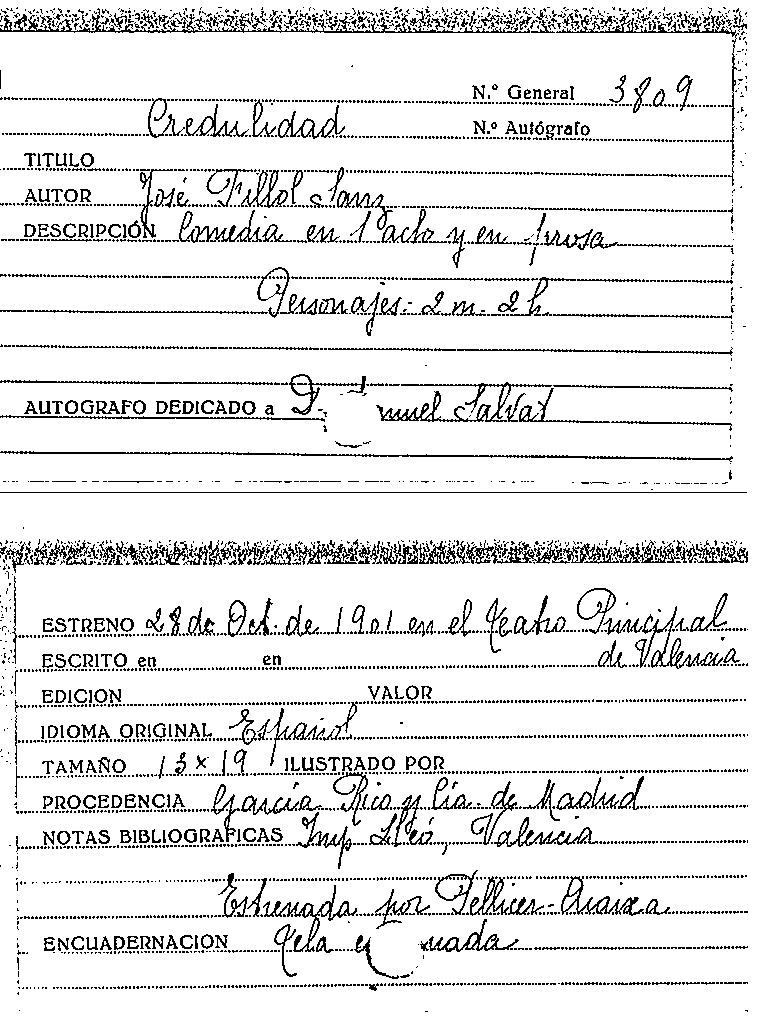 N.º General 3809
Credulidad
N.º Autógrafo
TITULO
AUTOR José Fillol Sanz
DESCRIPCIÓN Comedia en 1 acto y en prosa
Personajes.- 2 m. 2 h.
AUTOGRAFO DEDICADO a D. nuel Salvat
ESTRENO 28 de Oct. de 1901 en el Teatro Principal
ESCRITO en en de Valencia
EDICION VALOR
IDIOMA ORIGINAL Español
TAMAÑO 13 x 19 ILUSTRADO POR
PROCEDENCIA García Rico y Cía. de Madrid
NOTAS BIBLIOGRAFICAS Imp Lleó, Valencia
Estrenada por Pellicer-
ENCUADERNACION Tela